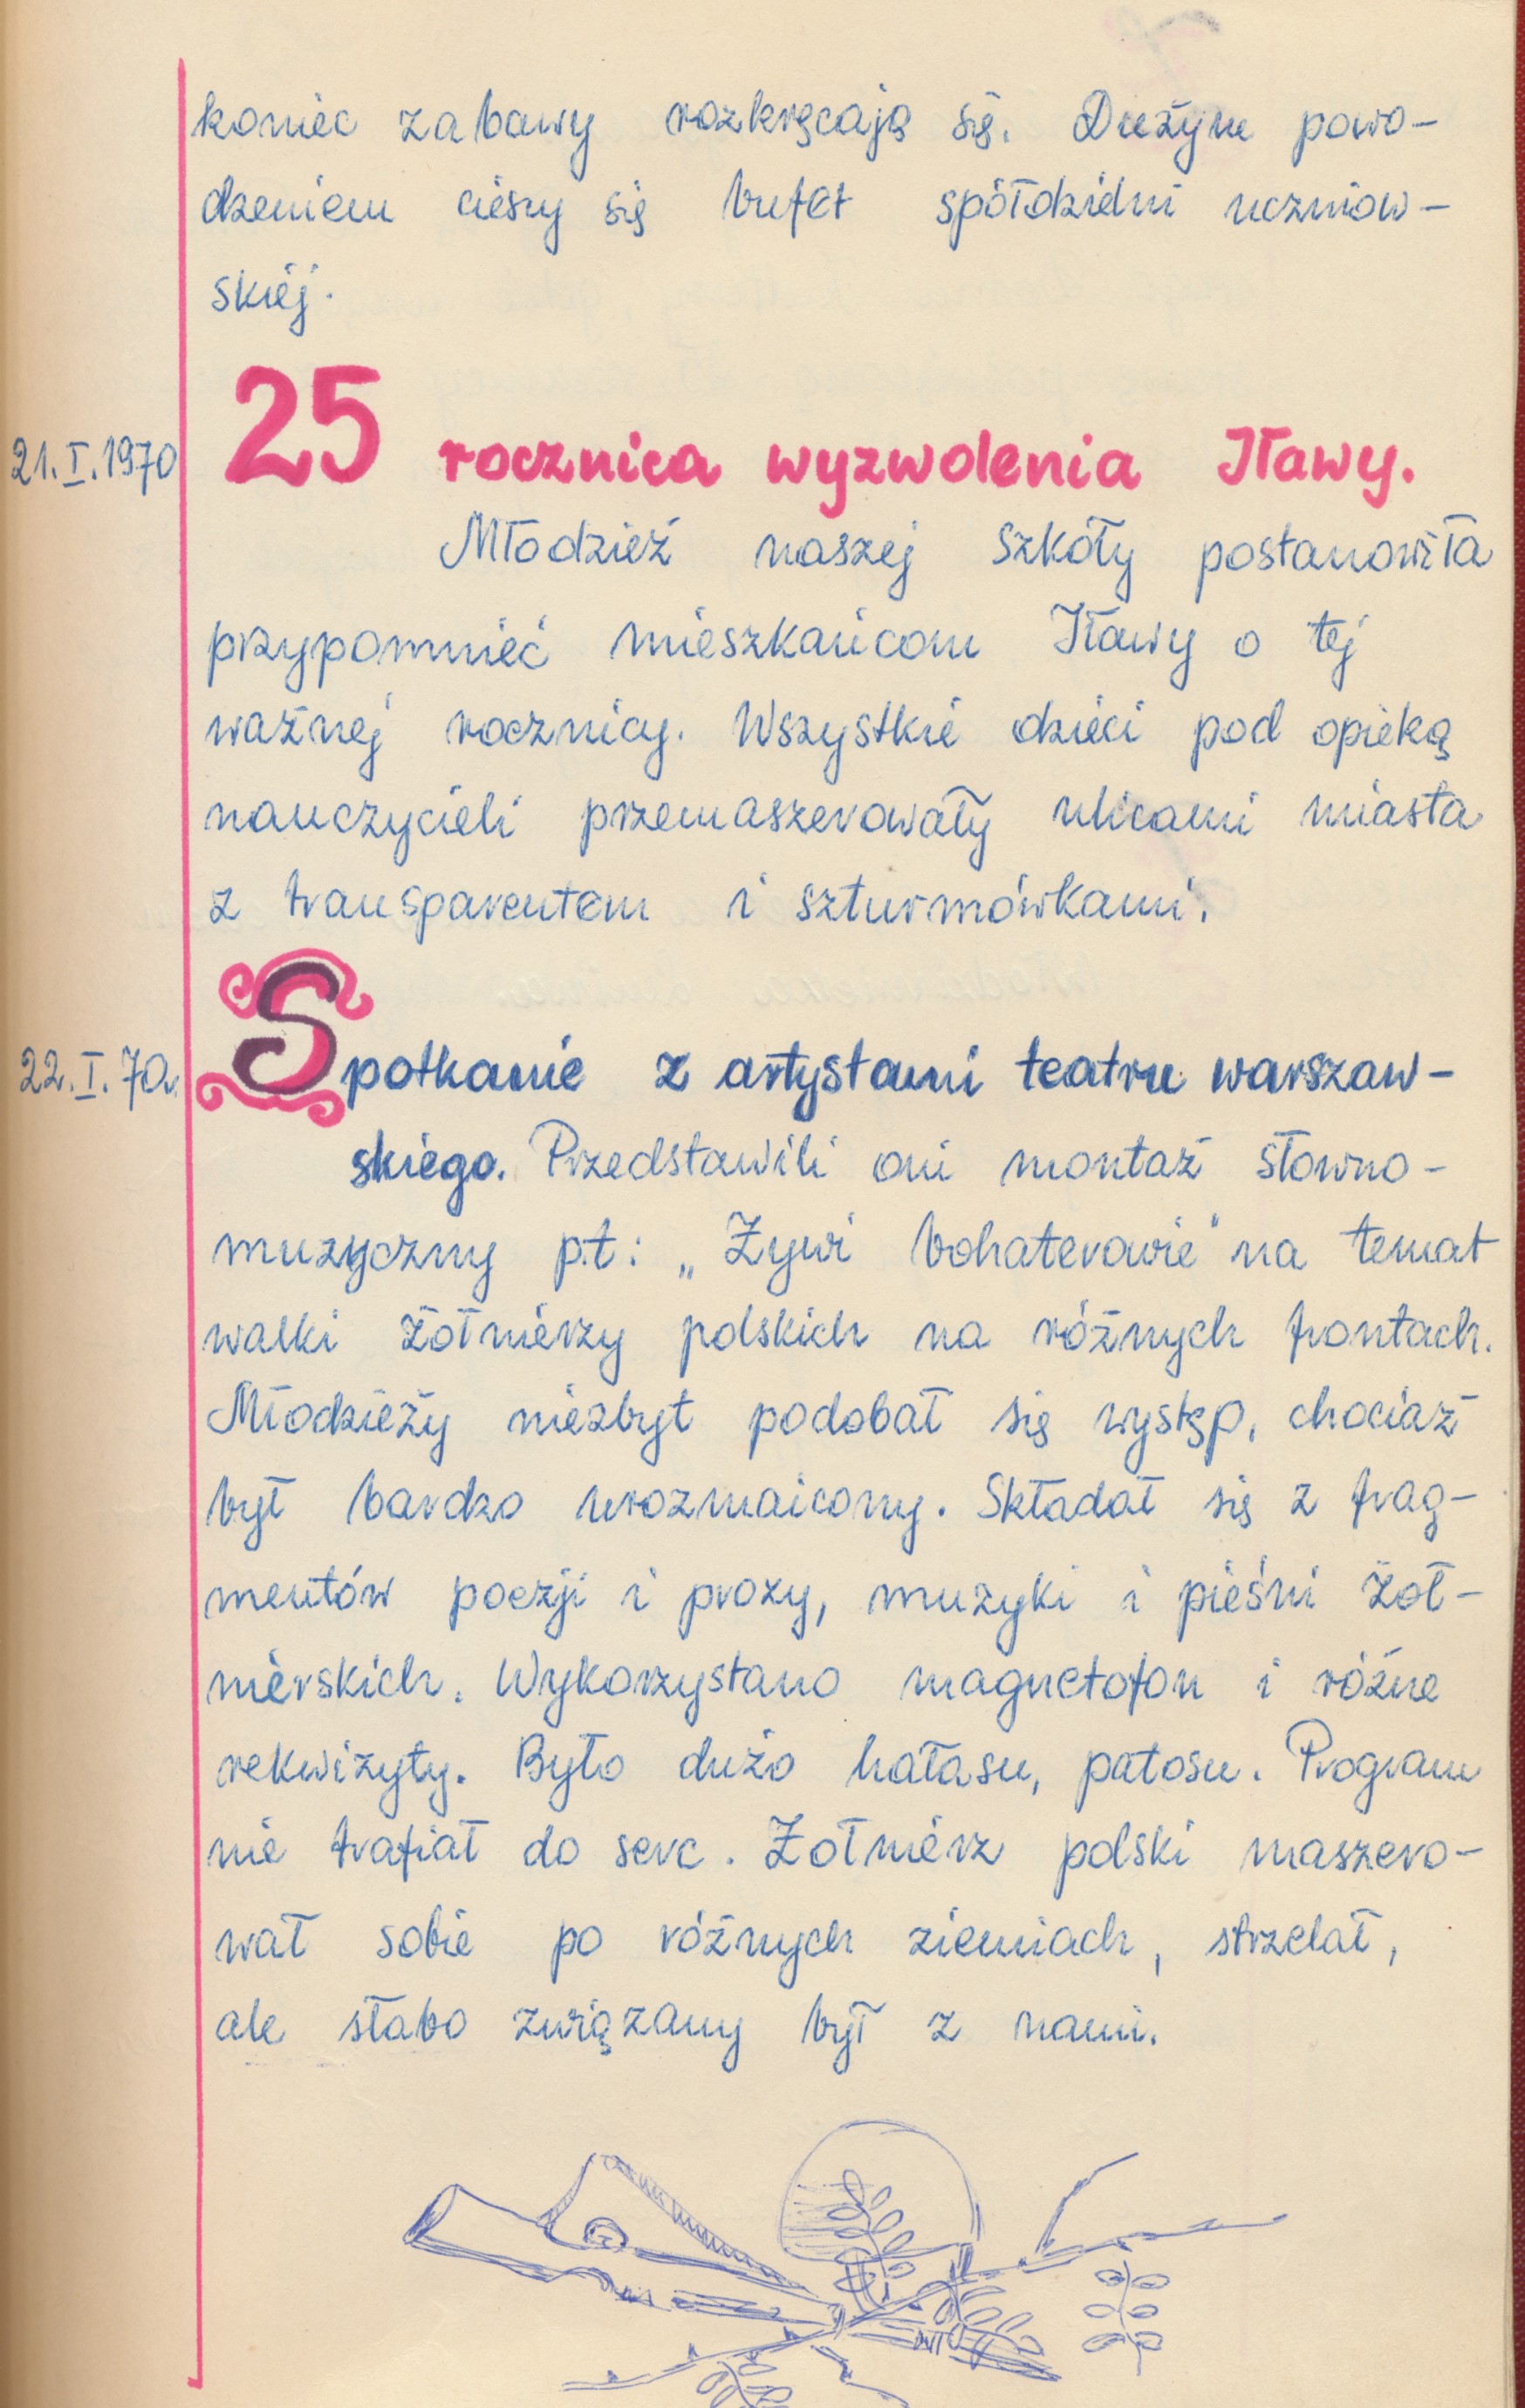 koniec zabawy rozkręcają się. Dużym powo-
dzeniem cieszy się bufet spółdzielni uczniow-
skiej.
21.I.1970 25 rocznica wyzwolenia Iławy.
Młodzież naszej szkoły postanowiła
przypomnieć mieszkańcom Iławy o tej
ważnej rocznicy. Wszystkie dzieci pod opieką
nauczycieli przemaszerowały ulicami miasta
z transparentem i szturmówkami.
22.I.70r. Spotkanie z artystami teatru warszaw-
skiego. Przedstawili oni montaż słowno-
muzyczny p.t: „Żywi bohaterowie" na temat
walki żołnierzy polskich na różnych frontach.
Młodzieży niezbyt podobał się występ, chociaż
był bardzo urozmaicony. Składał się z frag-
mentów poezji i prozy, muzyki i pieśni żoł-
nierskich. Wykorzystano magnetofon i różne
rekwizyty. Było dużo hałasu, patosu. Program
nie trafiał do serc. Żołnierz polski maszero-
wał sobie po różnych ziemiach, strzelał,
ale słabo związany był z nami.